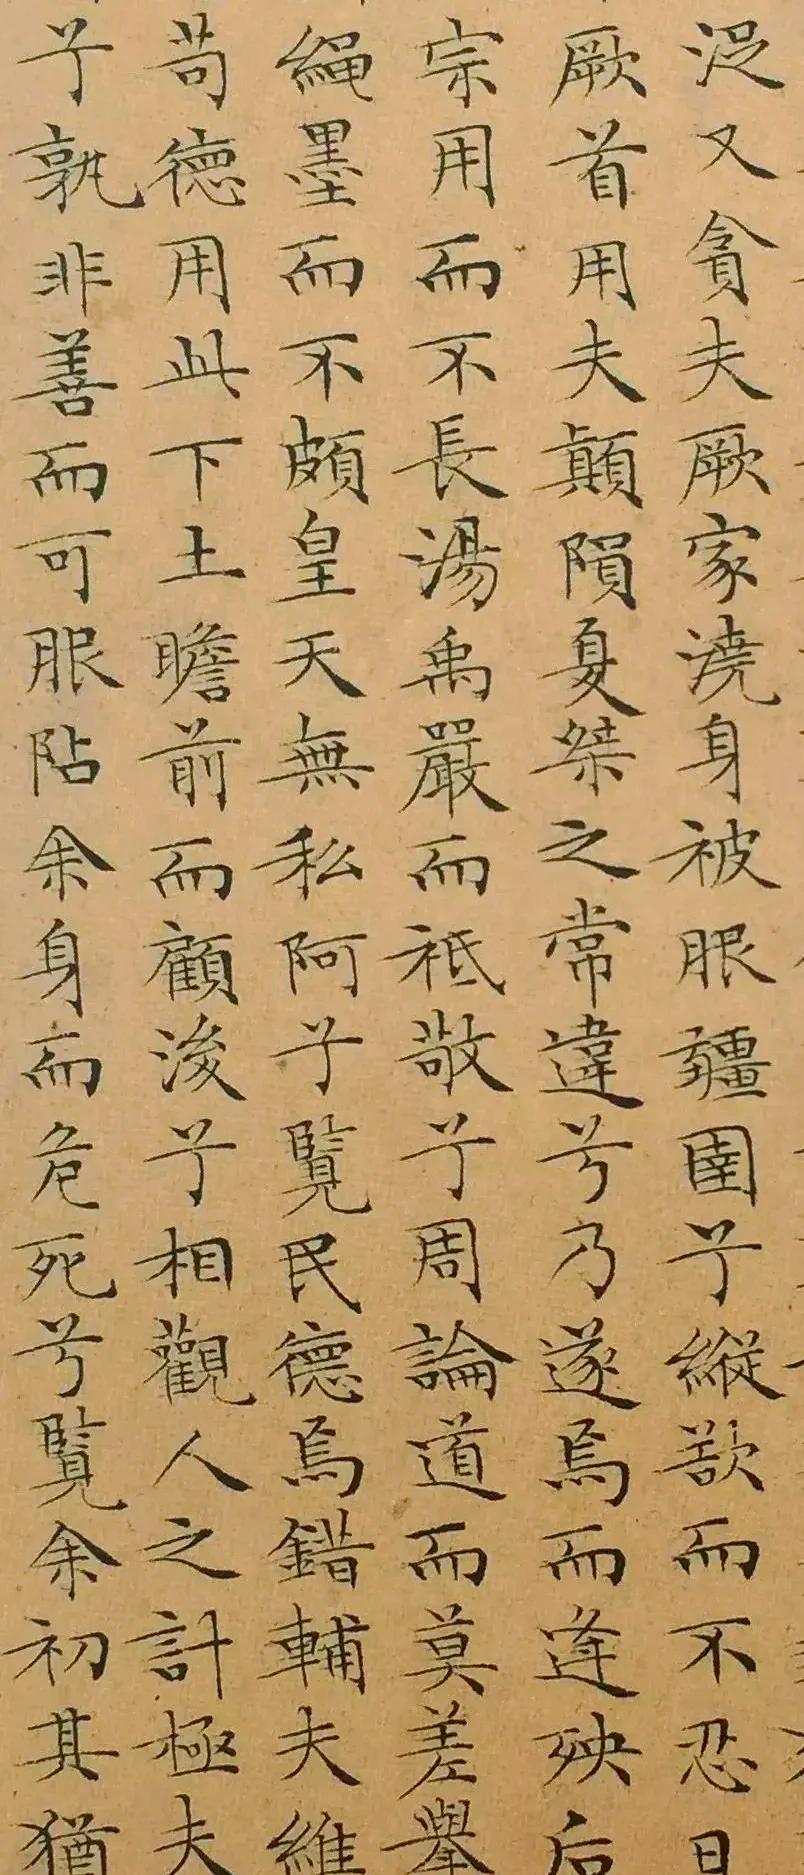 浞又貪夫厥家澆身被服彊圉兮縱欲而不忍日
厥首用夫顛隕夏桀之常違兮乃遂焉而逢殃后
宗用而不長湯禹嚴而祗敬兮周論道而莫差舉
繩墨而不頗皇天無私阿兮覽民德焉錯輔夫維
苟德用此下土瞻前而顧後兮相觀人之計極夫
兮孰非善而可服阽余身而危死兮覽余初其猶